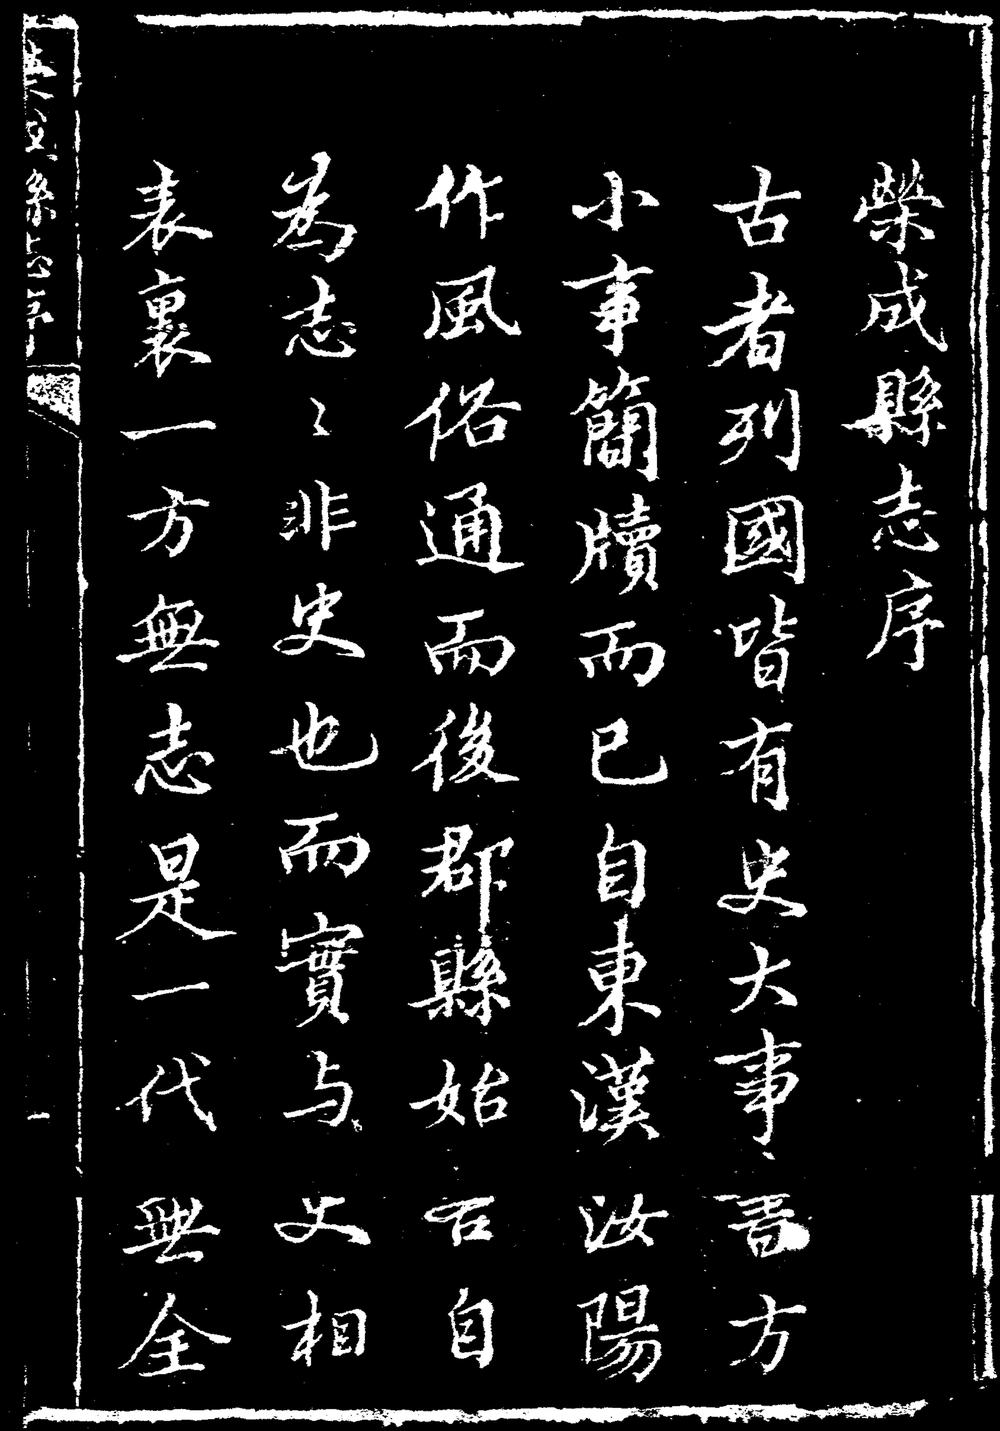 榮成縣志序
古者列國皆有史大事書方
小事簡牘而已自東漢汝陽
作風俗通而後郡縣始各自
為志〻非史也而實与史相
表裏一方無志是一代無全
縣志序
一